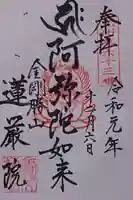 奉拝
令和元年
十二月六日
阿弥陀如来
金剛勝山
蓮厳院